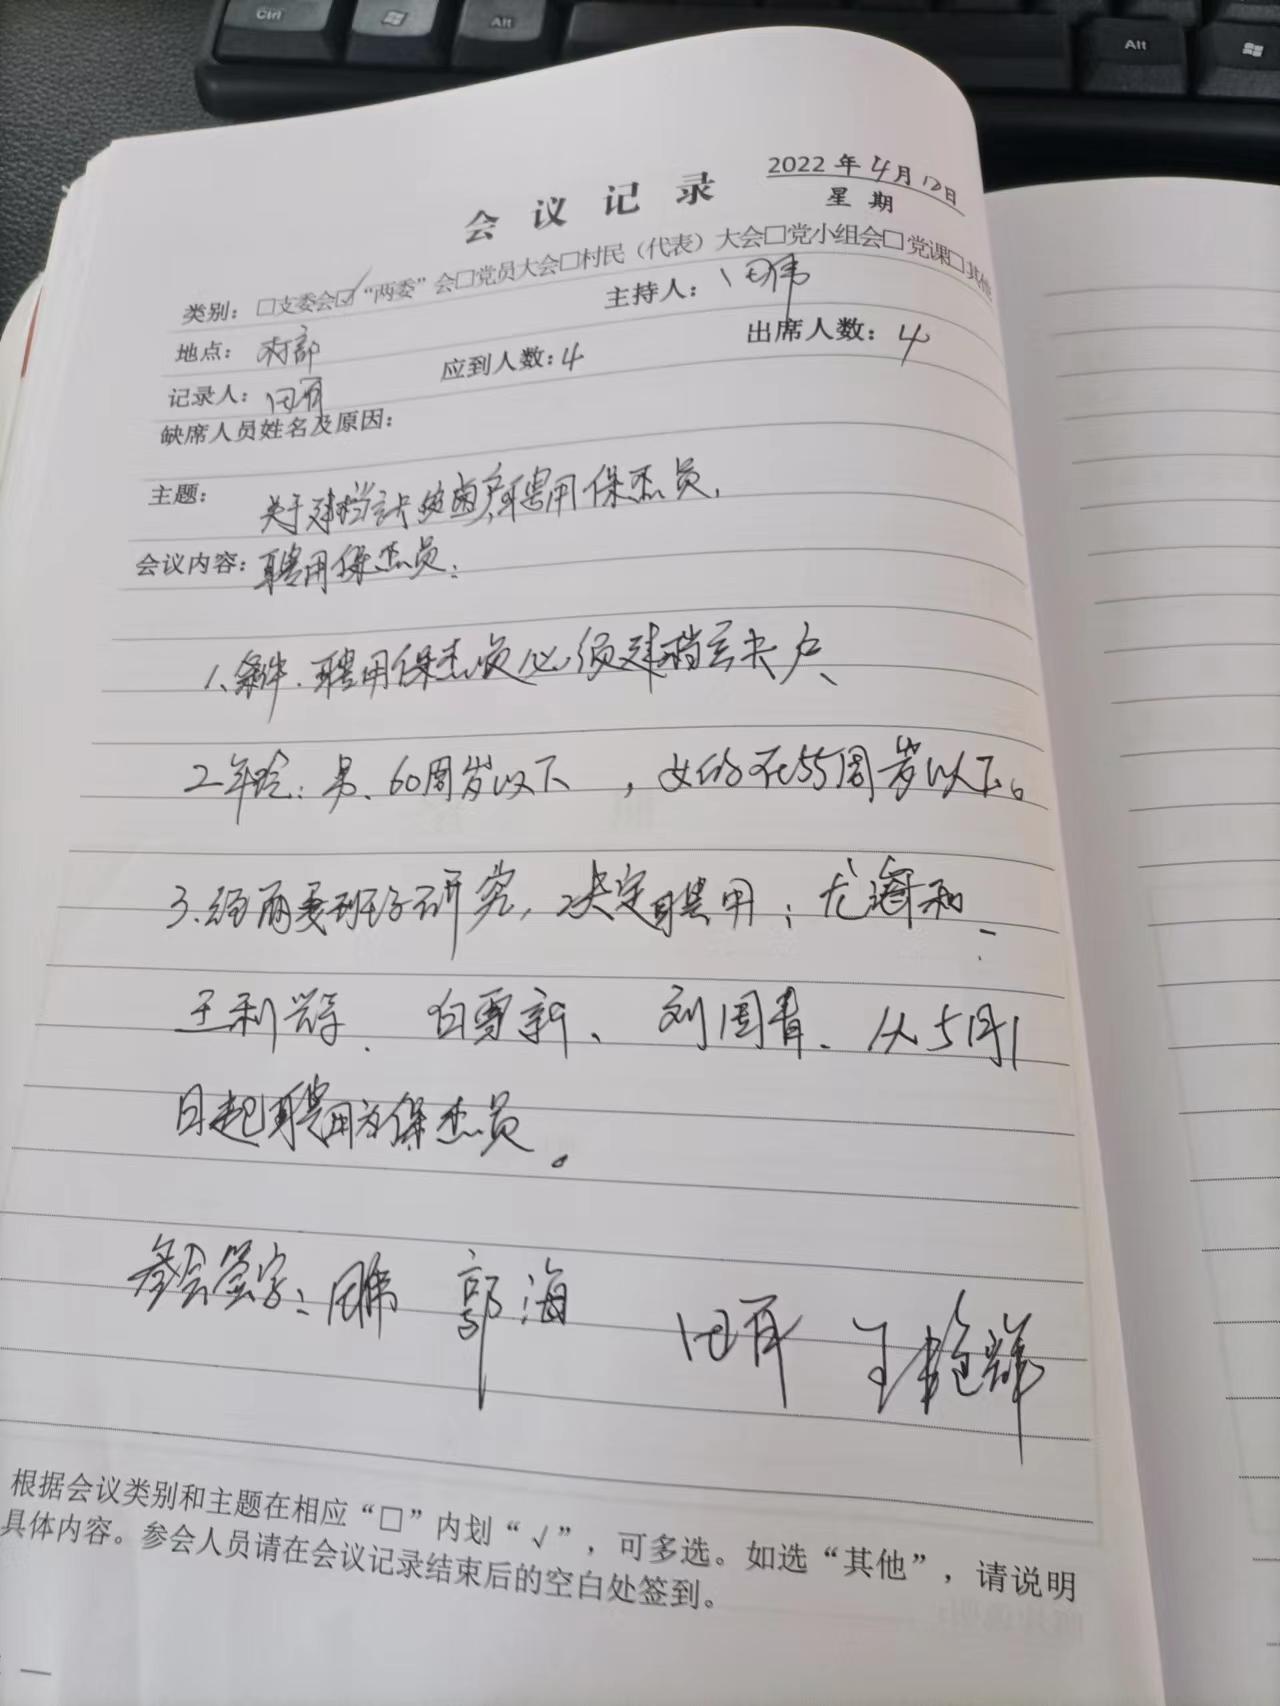 Ctrl
Alt
Alt
2022年4月12日
星期
会议记录
类别：□支委会☑“两委”会□党员大会□村民（代表）大会□党小组会□党课□其他
地点：村部
主持人：田伟
记录人：田
应到人数：4
出席人数：4
缺席人员姓名及原因：
主题：关于建档立卡贫困户聘用保杰员.
会议内容：聘用保杰员：
1、条件.聘用保杰员必须建档立卡户、
2年令：男、60周岁以下，女的在55周岁以下。
3.经两委班子研究，决定聘用：尤海和、
王利学、白雪新、刘国青、从5月1
日起聘用为保杰员。
参会签字：田伟 郭海 田 王艳辉
根据会议类别和主题在相应“□”内划“√”，可多选。如选“其他”，请说明
具体内容。参会人员请在会议记录结束后的空白处签到。